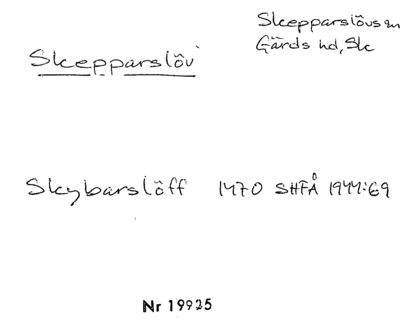 Skepparslövs sn
Gärds hd, Sk
Skepparslöv
Skybarslöff 1470 SHFÅ 1944:69
Nr 19925